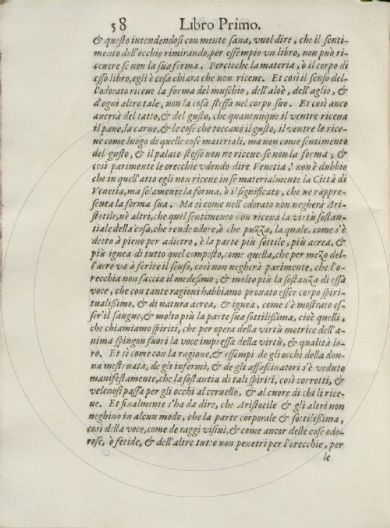 58 Libro Primo.
& questo intendendosi con mente sana, vuol dire, che il senti-
mento dell'occhio rimirando, per essempio vn libro, non può ri-
ceuere se non la sua forma. Percioche la materia, ò il corpo di
esso libro, egli è cosa chiara che non riceue. Et così il senso del-
l'odorato riceue la forma del muschio, dell'aloè, dell'aglio, &
d'ogni altro tale, non la cosa stessa nel corpo suo. Et così anco
auerrà del tatto, & del gusto, che quantunque il ventre riceua
il pane, la carne, & le cose che toccano il gusto, il ventre le rice-
ue come luogo di quelle cose materiali, ma non come sentimento
del gusto, & il palato stesso non ne riceue se non la forma; &
così parimente le orecchie vdendo dire Venetia, non è dubbio
che in quell'atto egli non riceue in se materialmente la Città di
Venetia, ma solamente la forma, ò 'l significato, che ne rappre-
senta la forma sua. Ma sì come nell'odorato non negherà Ari-
stotile, nè altri, che quel sentimento non riceua la virtù sostan-
tiale della cosa, che rende odore, ò che puzza, la quale, come s'è
detto à pieno per adietro, è la parte più sottile, più aerea, &
più ignea di tutto quel composto, come quella, che per mezo del-
l'aere và à ferire il senso, così non negherà parimente, che l'o-
recchia non faccia il medesimo; & molto più la sostanza di essa
voce, che con tante ragioni habbiamo prouato esser corpo spiri-
tualissimo, & di natura aerea, & ignea, come s'è mostrato es-
ser'il sangue, & molto più la parte sua sottilissima, cioè quelli,
che chiamiamo spiriti, che per opera della virtù motrice dell'a-
nima spingon fuori la voce impressa della virtù, & qualità lo-
ro. Et sì come con la ragione, & essempi de gli occhi della don-
na mestruata, de gli infermi, & de gli affascinatori s'è veduto
manifestamente, che la sostantia di tali spiriti, così corrotti, &
velenosi passa per gli occhi al ceruello, & al cuore di chi li rice-
ue. Et finalmente s'ha da dire, che Aristotile & gli altri non
neghino in alcun modo, che la parte corporale & sottilissima,
così della voce, come de raggi visiui, & come ancor delle cose odo-
rose, ò fetide, & dell'altre tutte non penetri per l'orecchie, per
le